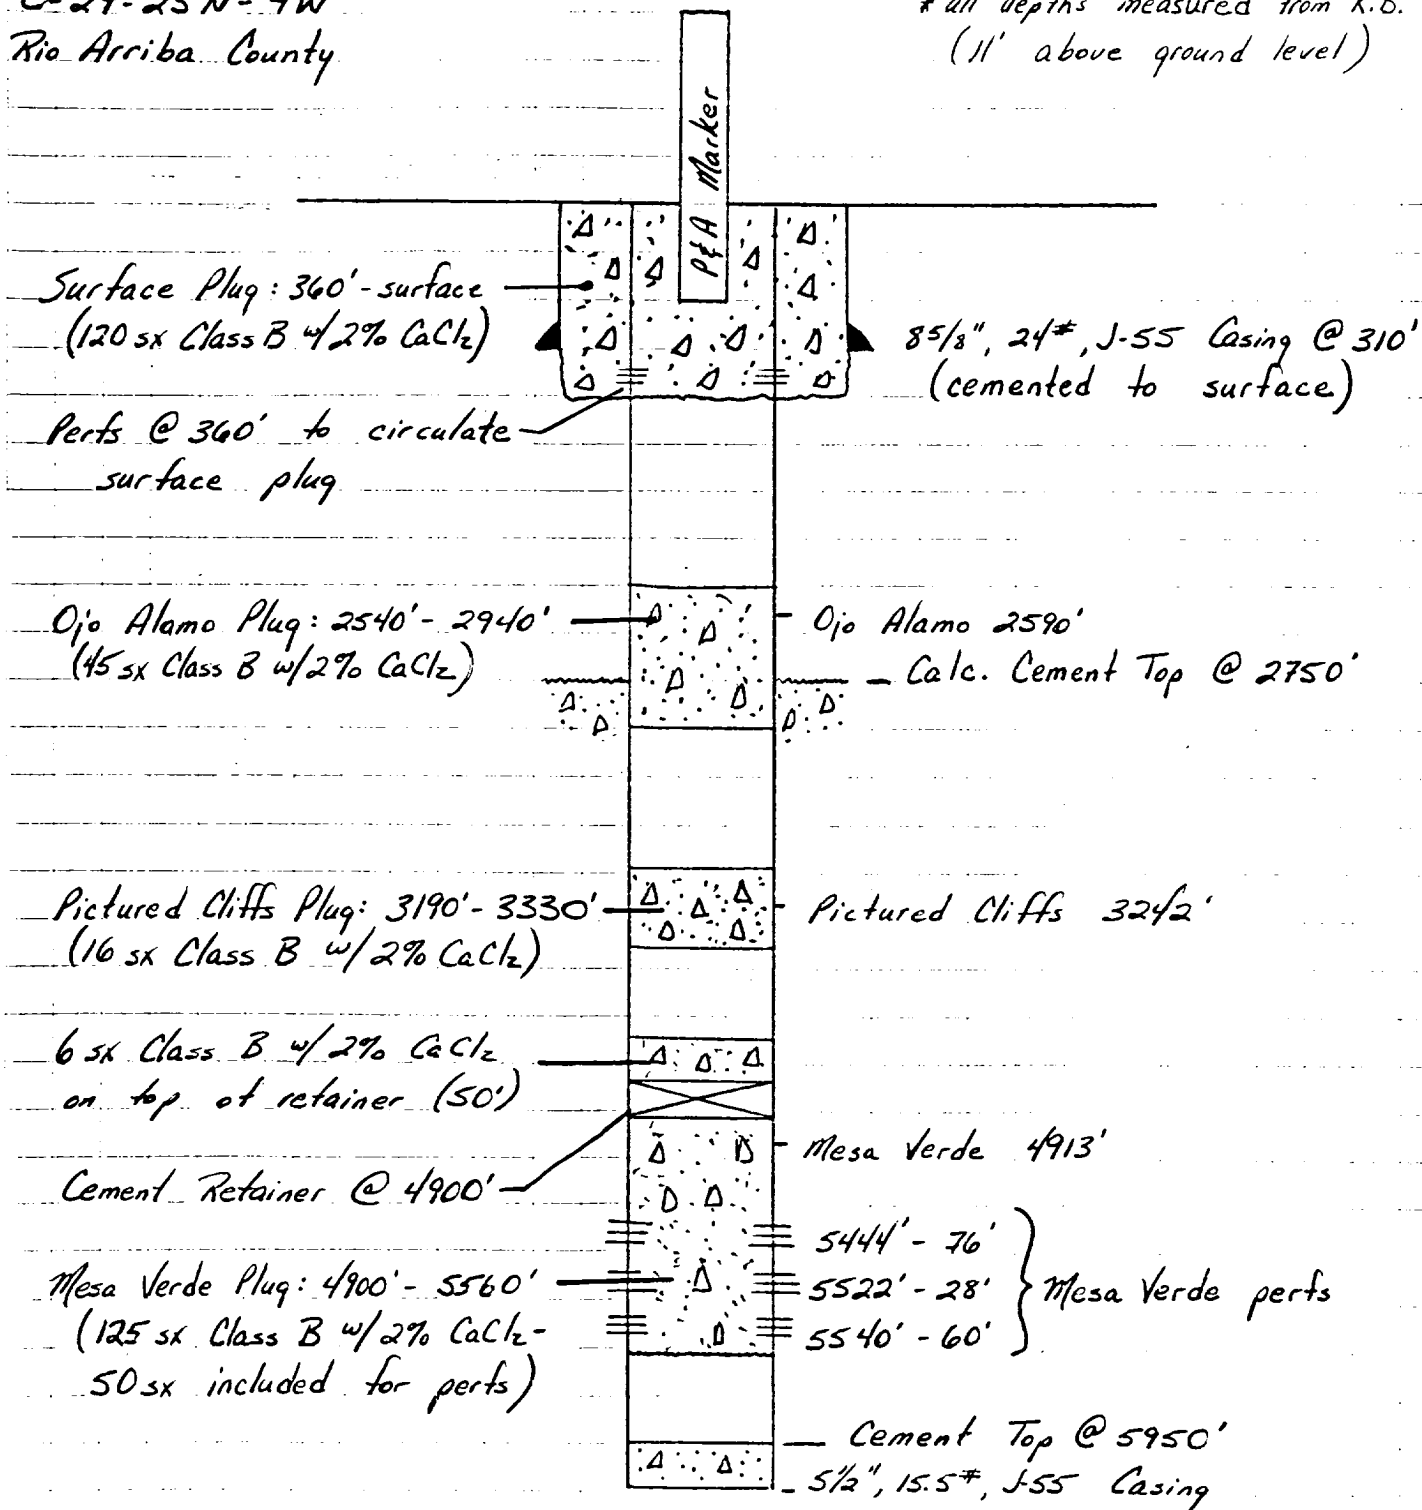 C-29-25N-4W
Rio Arriba County
* all depths measured from K.B.
(11' above ground level)
P&A Marker
Surface Plug: 360'-surface
(120 sx Class B w/2% CaCl2)
8 5/8", 24#, J-55 Casing @ 310'
(cemented to surface)
Perfs @ 360' to circulate
surface plug
Ojo Alamo Plug: 2540'- 2940'
(45 sx Class B w/2% CaCl2)
Ojo Alamo 2590'
Calc. Cement Top @ 2750'
Pictured Cliffs Plug: 3190'-3330'
(16 sx Class B w/2% CaCl2)
Pictured Cliffs 3242'
6 sx Class B w/2% CaCl2
on top of retainer (50')
Cement Retainer @ 4900'
Mesa Verde 4913'
Mesa Verde Plug: 4900'- 5560'
(125 sx Class B w/2% CaCl2-
50 sx included for perfs)
5444' - 76'
5522' - 28'
5540' - 60'
Mesa Verde perfs
Cement Top @ 5950'
5 1/2", 15.5#, J-55 Casing